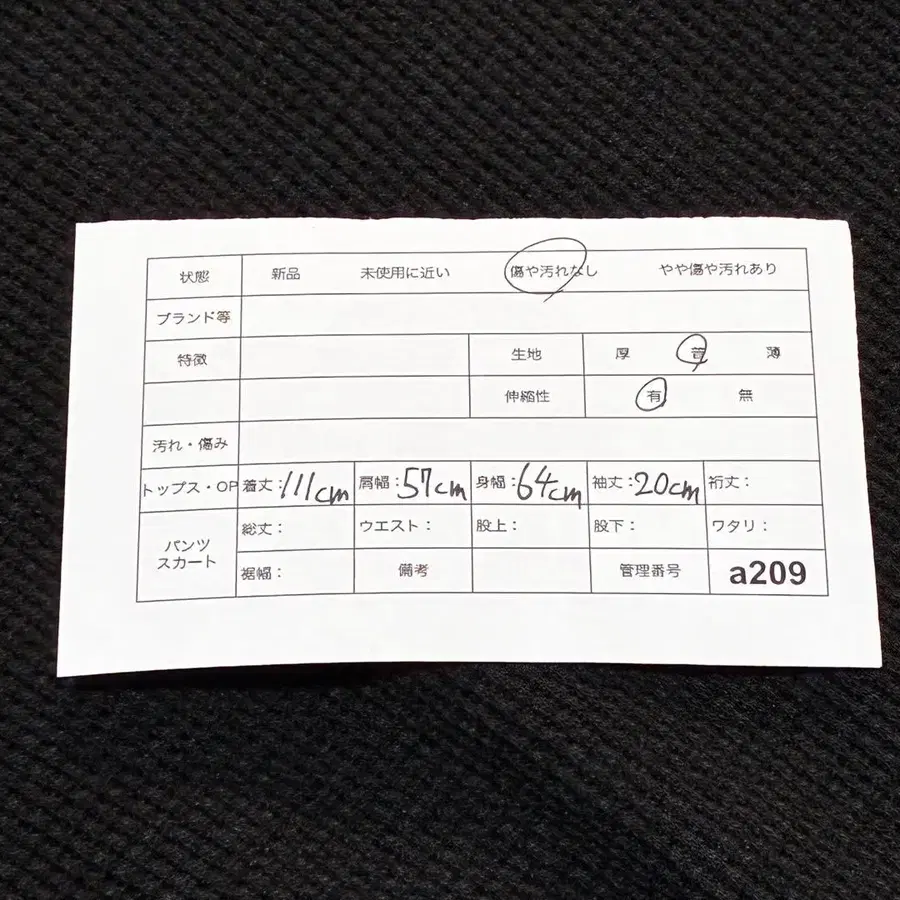 状態 新品 未使用に近い 傷や汚れなし やや傷や汚れあり
ブランド等
特徴 生地 厚 普 薄
伸縮性 有 無
汚れ・傷み
トップス・OP 着丈：111cm 肩幅：57cm 身幅：64cm 袖丈：20cm 裄丈：
パンツ スカート 総丈： ウエスト： 股上： 股下： ワタリ：
裾幅： 備考 管理番号 a209